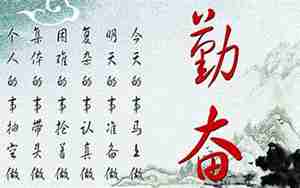 勤奋
今天的事马上做
明天的事准备做
复杂的事认真做
困难的事抢着做
集体的事带头做
个人的事抽空做